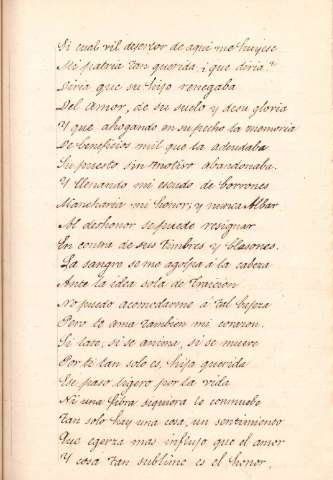 Si cual vil desertor de aqui me huyese
Mi patria tan querida, ¿que diria?
Diria que su hijo renegaba
Del amor, de su suelo y de su gloria
Y que ahogando en su pecho la memoria
De beneficios mil que la adeudaba
Su puesto sin motivo abandonaba.
Y llenando mi escudo de borrones
Mancharia mi honor; y nunca Albar
Al deshonor se puede resignar
En contra de sus timbres y blasones.
La sangre se me agolpa á la cabeza
Ante la idea sola de traccion
No puedo acomodarme á tal bajeza
Pero te ama tambien mi corazon.
Si late, si se anima, si se mueve
Por ti tan solo es, hija querida
Ese paso ligero por la vida
Ni una fibra siquiera le conmueve
Tan solo hay una cosa, un sentimiento
Que egerza mas influjo que el amor
Y cosa tan sublime es el honor.